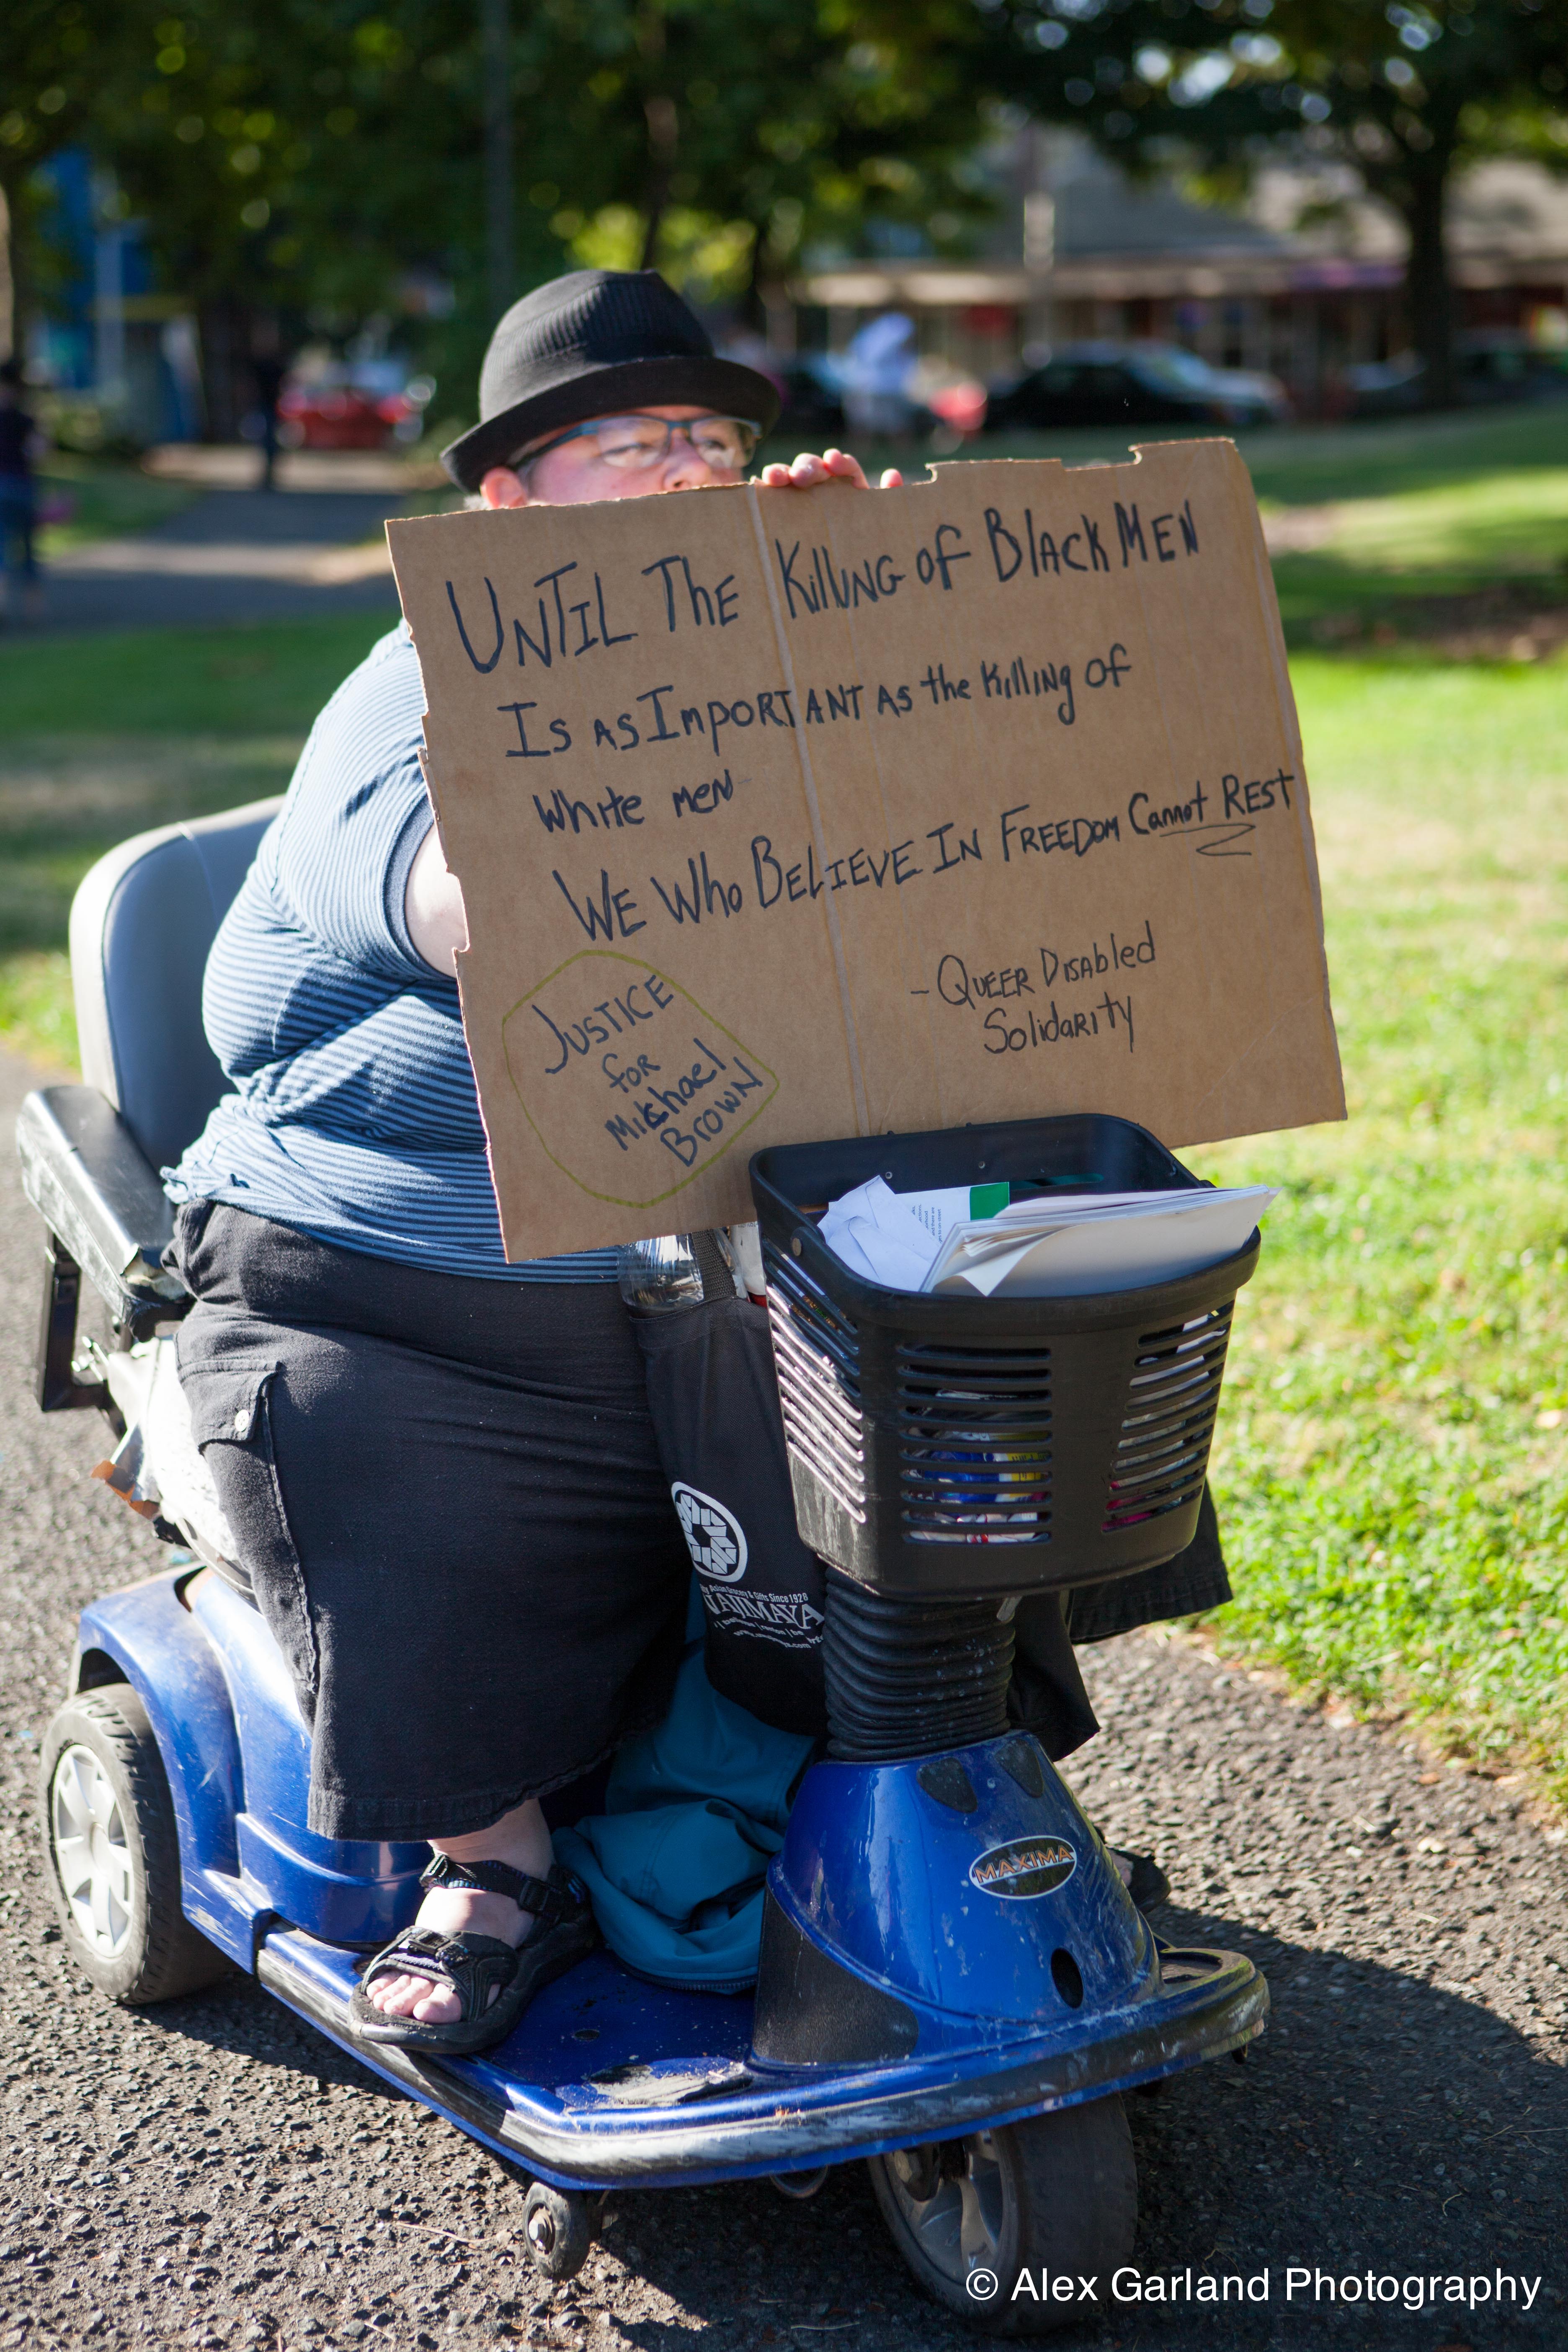 UNTIL The Killing of Black MEN
Is as Important as the killing of
White men
WE Who BELIEVE IN FREEDOM Cannot REST
- QUEER Disabled
Solidarity
JUSTICE
for
Michael
BROWN
Asian Grocery & Gifts Since 1928
MAXIMA
© Alex Garland Photography